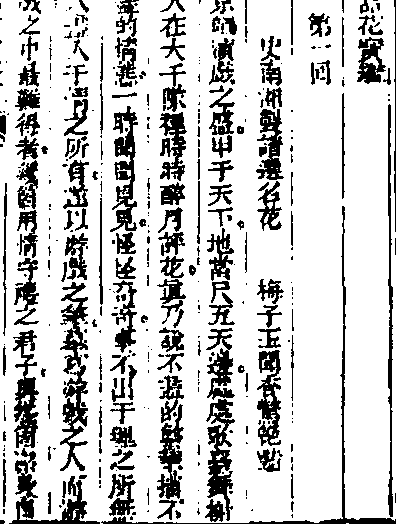 品花寶鑑
第一回
史南湖製譜選名花　梅子玉聞香驚絕豔
京師演戲之盛甲于天下。地當尺五天邊處處歌臺舞榭
人在大千隊裡時時醉月評花。真乃說不盡的繁華描不
的情態。一時聞聞見見。怪怪奇奇。事不出于理之所無
人于情之所有。遂以游戲之筆摹寫游戲之人。而
戲之中最難得者幾箇用情守禮之君子。與幾個